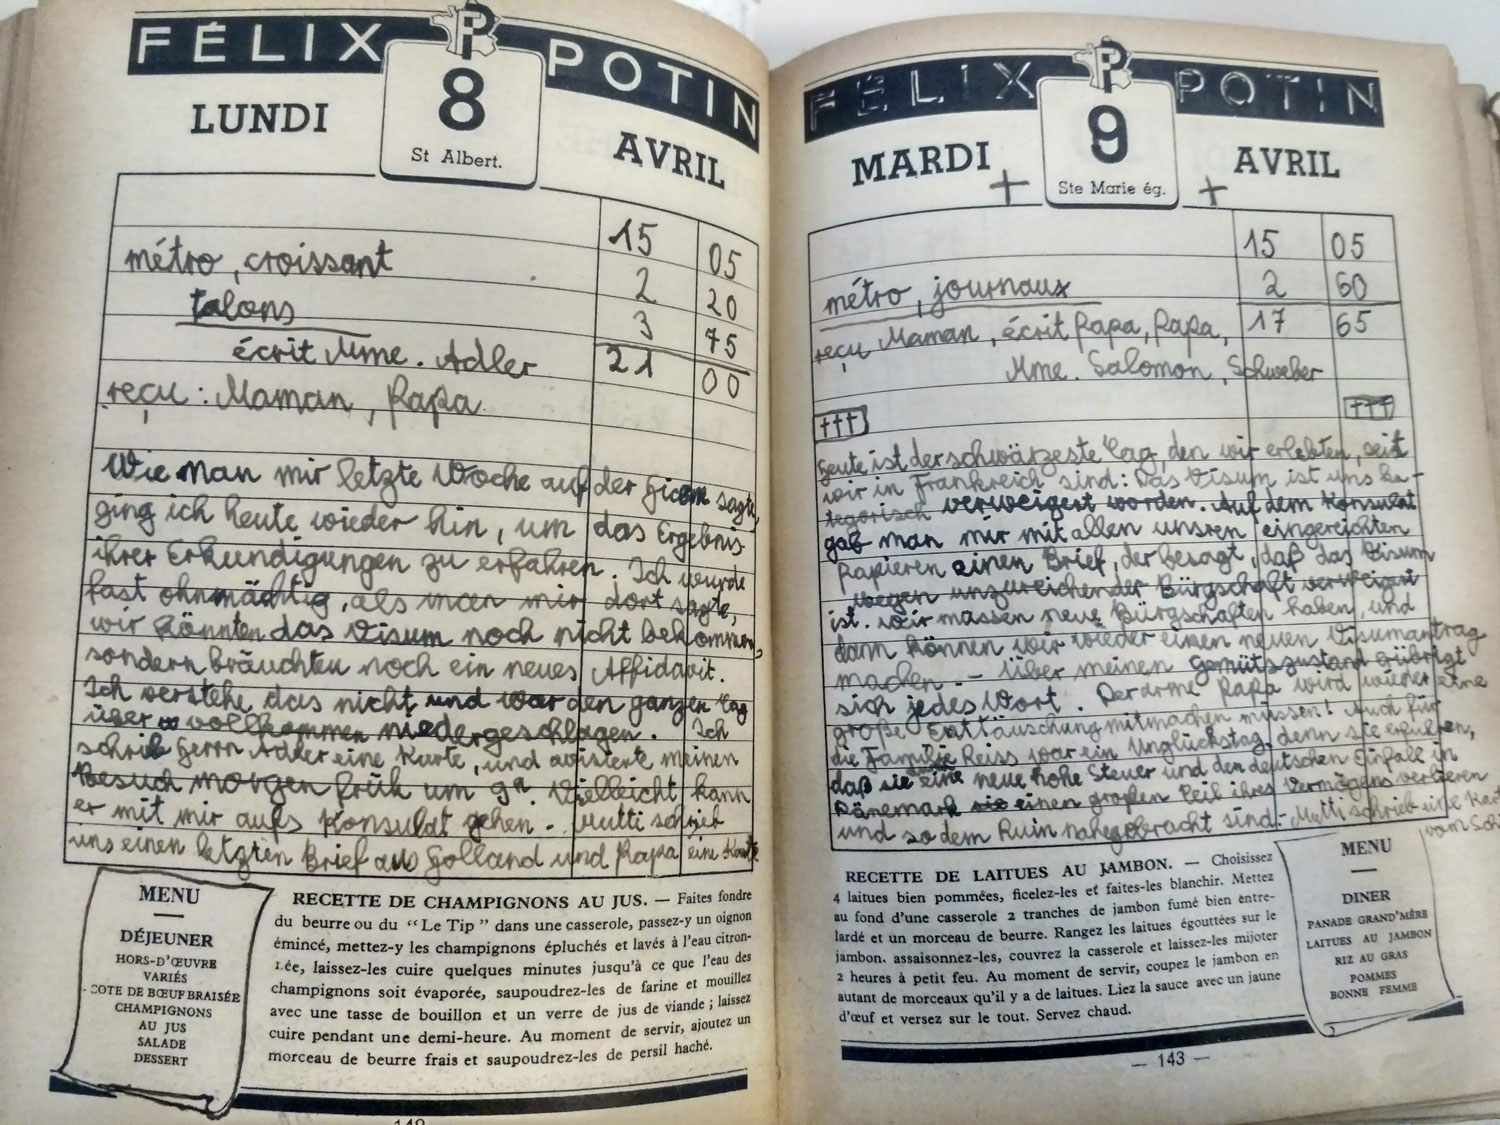 FÉLIX POTIN
LUNDI 8 AVRIL
St Albert.
15 05
métro, croissant 2 20
talons 3 75
écrit Mme. Adler 21 00
reçu : Maman, Papa
Wie man mir letzte Woche auf der Hicem sagte,
ging ich heute wieder hin, um das Ergebnis
ihrer Erkundigungen zu erfahren. Ich wurde
fast ohnmächtig, als man mir dort sagte,
wir könnten das Visum noch nicht bekommen,
sondern bräuchten noch ein neues Affidavit.
Ich verstehe das nicht und war den ganzen Tag
über vollkommen niedergeschlagen. Ich
schrieb Herrn Adler eine Karte, und avisierte meinen
Besuch morgen früh um 9h. Vielleicht kann
er mit mir aufs Konsulat gehen. - Mutti schrieb
uns einen letzten Brief aus Holland und Papa eine Karte
MENU
DÉJEUNER
HORS-D'ŒUVRE
VARIÉS
COTE DE BŒUF BRAISÉE
CHAMPIGNONS
AU JUS
SALADE
DESSERT
RECETTE DE CHAMPIGNONS AU JUS. — Faites fondre
du beurre ou du “Le Tip” dans une casserole, passez-y un oignon
émincé, mettez-y les champignons épluchés et lavés à l'eau citron-
née, laissez-les cuire quelques minutes jusqu'à ce que l'eau des
champignons soit évaporée, saupoudrez-les de farine et mouillez
avec une tasse de bouillon et un verre de jus de viande ; laissez
cuire pendant une demi-heure. Au moment de servir, ajoutez un
morceau de beurre frais et saupoudrez-les de persil haché.
142
FÉLIX POTIN
MARDI 9 AVRIL
Ste Marie ég.
15 05
métro, journaux 2 60
reçu Maman, écrit Papa, Papa, 17 65
Mme. Salomon, Schweber
††† †††
Heute ist der schwärzeste Tag, den wir erlebten, seit
wir in Frankreich sind: Das Visum ist uns ka-
tegorisch verweigert worden. Auf dem Konsulat
gab man mir mit allen unsren eingereichten
Papieren einen Brief, der besagt, daß das Visum
wegen unzureichender Bürgschaft verweigert
ist. Wir müssen neue Bürgschaften haben, und
dann können wir wieder einen neuen Visumantrag
machen. - Über meinen Gemütszustand erübrigt
sich jedes Wort. Der arme Papa wird wieder eine
große Enttäuschung mitmachen müssen! Auch für
die Familie Reiss war ein Unglückstag, denn sie erfuhren,
daß sie eine neue hohe Steuer und den deutschen Einfall in
Dänemark einen großen Teil ihres Vermögens verlieren
und so dem Ruin nahegebracht sind. - Mutti schrieb eine Karte
vom Schi
RECETTE DE LAITUES AU JAMBON. — Choisissez
4 laitues bien pommées, ficelez-les et faites-les blanchir. Mettez
au fond d'une casserole 2 tranches de jambon fumé bien entre-
lardé et un morceau de beurre. Rangez les laitues égouttées sur le
jambon, assaisonnez-les, couvrez la casserole et laissez-les mijoter
2 heures à petit feu. Au moment de servir, coupez le jambon en
autant de morceaux qu'il y a de laitues. Liez la sauce avec un jaune
d'œuf et versez sur le tout. Servez chaud.
MENU
DINER
PANADE GRAND'MÈRE
LAITUES AU JAMBON
RIZ AU GRAS
POMMES
BONNE FEMME
— 143 —